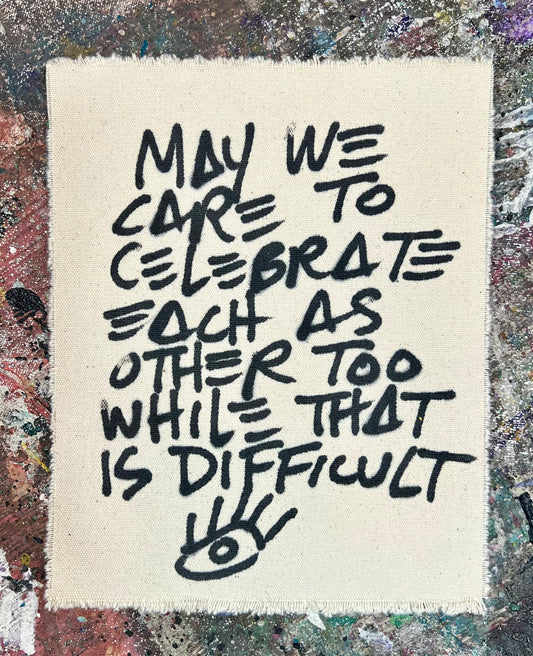 MAY WE
CARE TO
CELEBRATE
EACH AS
OTHER TOO
WHILE THAT
IS DIFFICULT